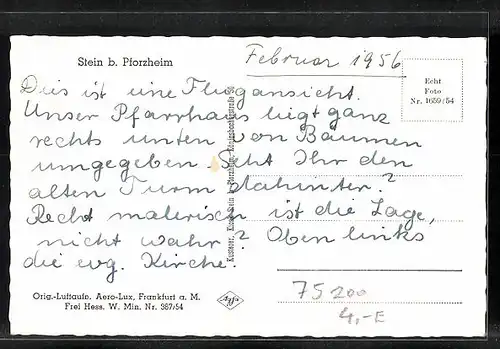 Stein b. Pforzheim
Februar 1956
Echt
Foto
Nr. 1659/54
Dies ist eine Flugansicht.
Unser Pfarrhaus liegt ganz
rechts unten von Bäumen
umgegeben. Seht Ihr den
alten Turm dahinter?
Recht malerisch ist die Lage,
nicht wahr? Oben links
die evg. Kirche!
Stein b. Pforzheim
Orig.-Luftaufn. Aero-Lux, Frankfurt a. M.
Frei Hess. W. Min. Nr. 387/54
Agfa
75200
4,-E